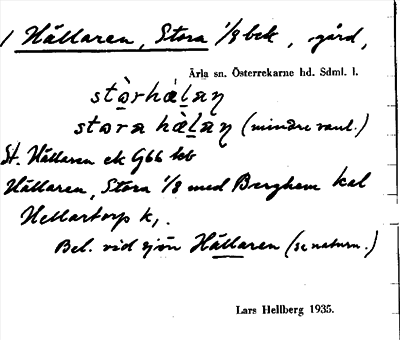 1 Hällaren, Stora 1/8 bek, gård,
Ärla sn. Österrekarne hd. Sdml. l.
stòrhálaɳ
stora hàlaɳ (mindre vanl.)
St. Hällaren ek G66 kb
Hällaren, Stora 1/8 med Berghem kal
Hellartorp k,.
Bel. vid sjön Hällaren (se naturn.)
Lars Hellberg 1935.